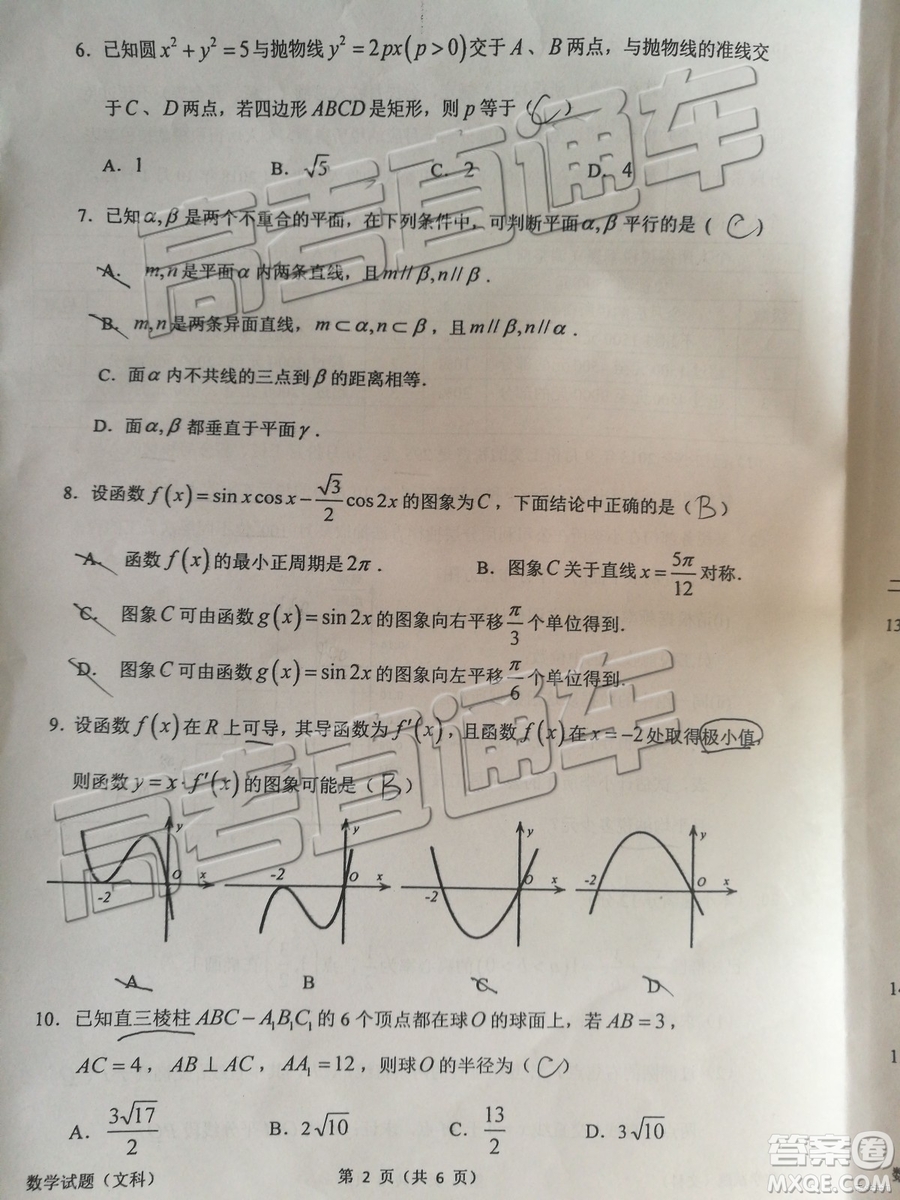 6. 已知圆 x²+y²=5 与抛物线 y²=2px(p>0) 交于 A、B 两点，与抛物线的准线交
于 C、D 两点，若四边形 ABCD 是矩形，则 p 等于（C）
A. 1 B. √5 C. 2 D. 4
7. 已知 α,β 是两个不重合的平面，在下列条件中，可判断平面 α,β 平行的是（C）
A. m,n 是平面 α 内两条直线，且 m//β,n//β.
B. m,n 是两条异面直线，m⊂α,n⊂β，且 m//β,n//α.
C. 面 α 内不共线的三点到 β 的距离相等.
D. 面 α,β 都垂直于平面 γ.
8. 设函数 f(x)=sin x cos x−(√3/2)cos 2x 的图象为 C，下面结论中正确的是（B）
A. 函数 f(x) 的最小正周期是 2π. B. 图象 C 关于直线 x=5π/12 对称.
C. 图象 C 可由函数 g(x)=sin 2x 的图象向右平移 π/3 个单位得到.
D. 图象 C 可由函数 g(x)=sin 2x 的图象向左平移 π/6 个单位得到.
9. 设函数 f(x) 在 R 上可导，其导函数为 f′(x)，且函数 f(x) 在 x=−2 处取得极小值，
则函数 y=x·f′(x) 的图象可能是（B）
y y y y
-2 O x -2 O x -2 O x -2 O x
A B C D
10. 已知直三棱柱 ABC−A₁B₁C₁ 的 6 个顶点都在球 O 的球面上，若 AB=3，
AC=4，AB⊥AC，AA₁=12，则球 O 的半径为（C）
A. 3√17/2 B. 2√10 C. 13/2 D. 3√10
数学试题（文科） 第 2 页（共 6 页） 数
二
13
14
1
高考直通车
高考直通车
答案圈
MXQE.COM